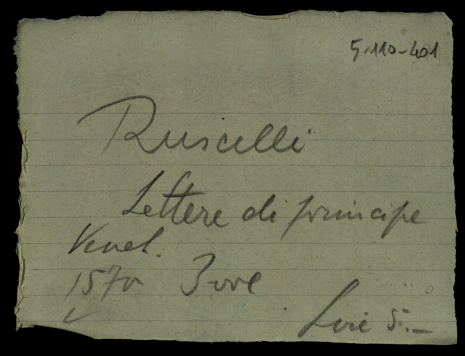 5-110-401
Ruscelli
Lettere di principe
Venet.
1570 3 vol
Lire 5.—